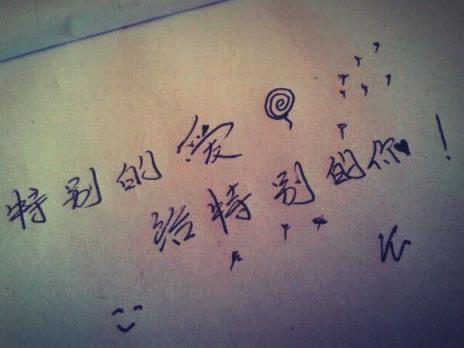 特别的爱
给特别的你!